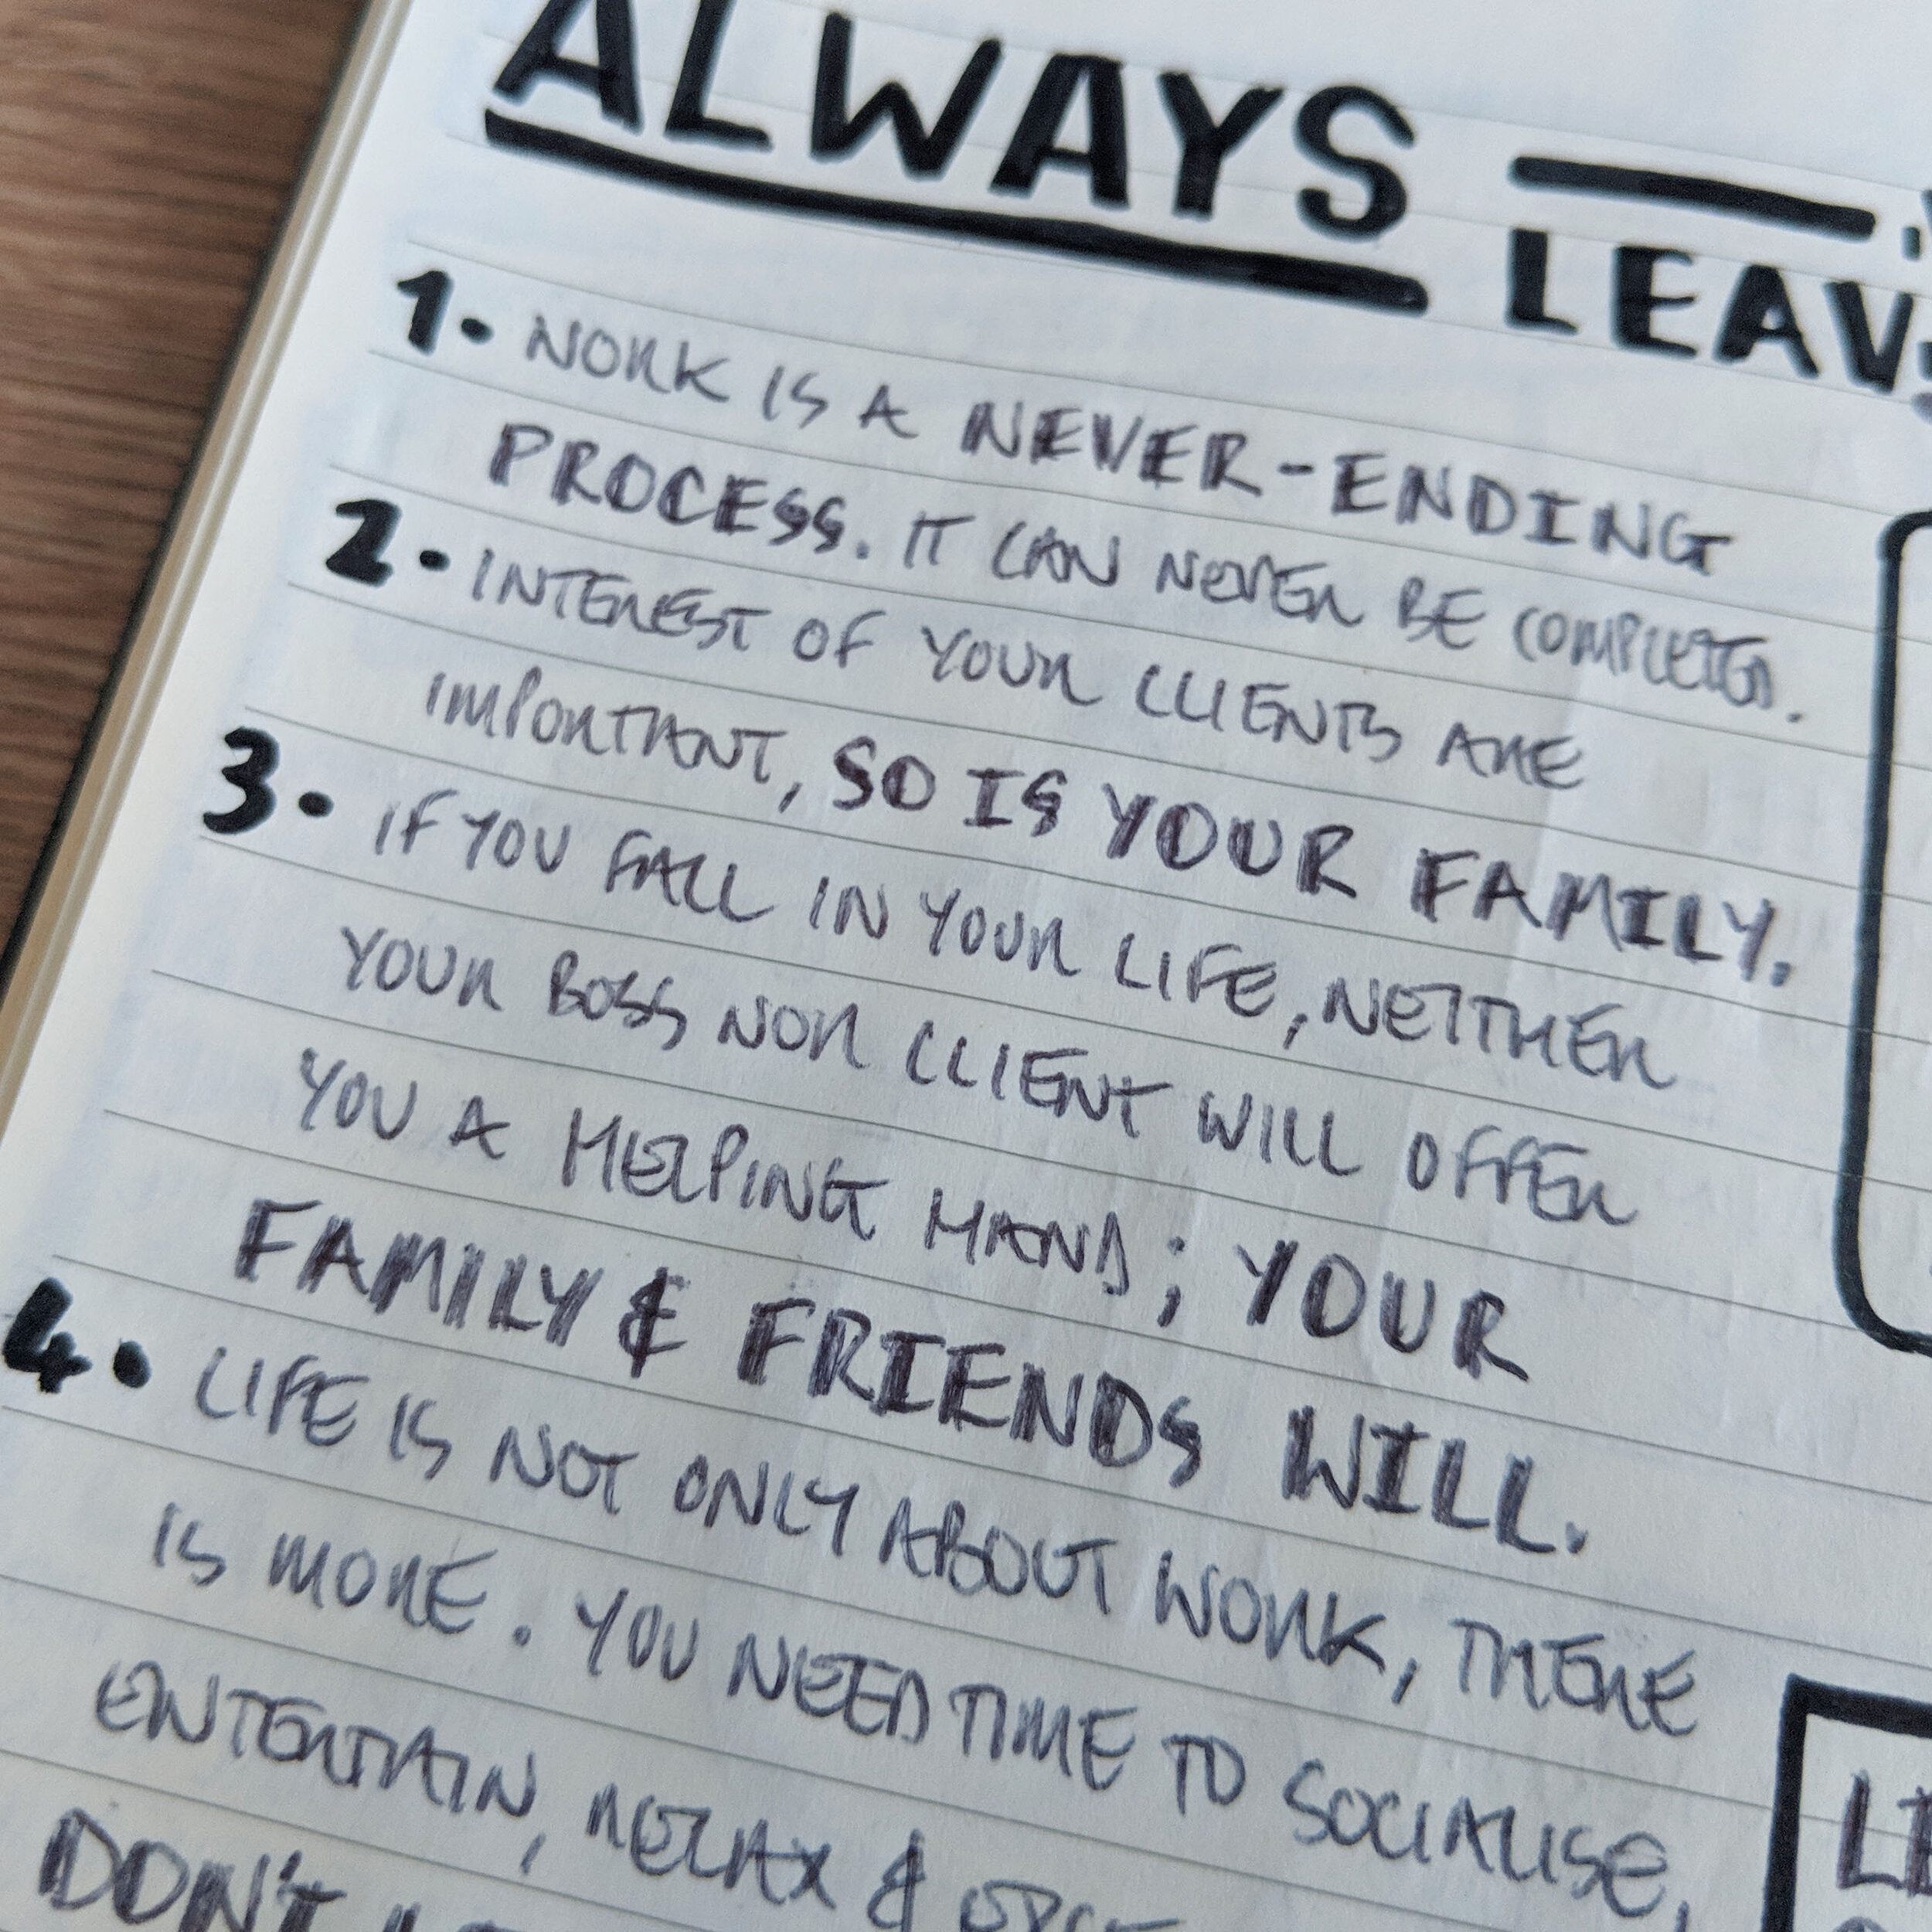 ALWAYS
LEAV
1. WORK IS A NEVER-ENDING
PROCESS. IT CAN NEVER BE COMPLETED.
2. INTEREST OF YOUR CLIENTS ARE
IMPORTANT, SO IS YOUR FAMILY.
3. IF YOU FALL IN YOUR LIFE, NEITHER
YOUR BOSS NOR CLIENT WILL OFFER
YOU A HELPING HAND; YOUR
FAMILY & FRIENDS WILL.
4. LIFE IS NOT ONLY ABOUT WORK, THERE
IS MORE. YOU NEED TIME TO SOCIALISE,
ENTERTAIN, RELAX &
DON'T